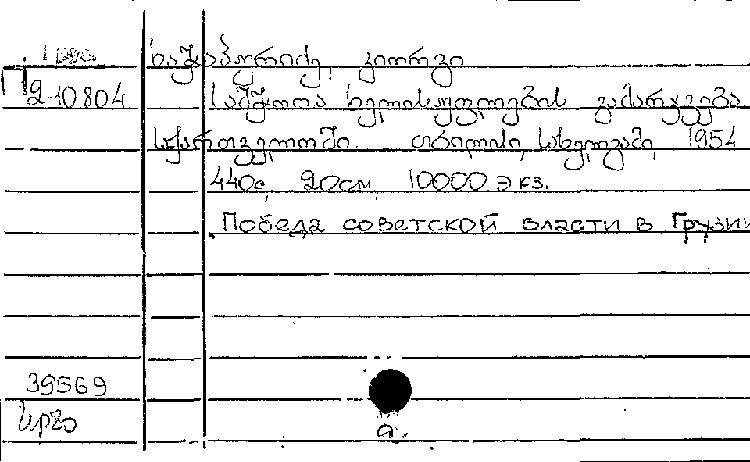 ხაჭაპურიძე, გიორგი
П2-10804
საბჭოთა ხელისუფლების გამარჯვება
საქართველოში. თბილისი, სახელგამი, 1954
440с. 20см. 10000 экз.
Победа советской власти в Грузии
39569